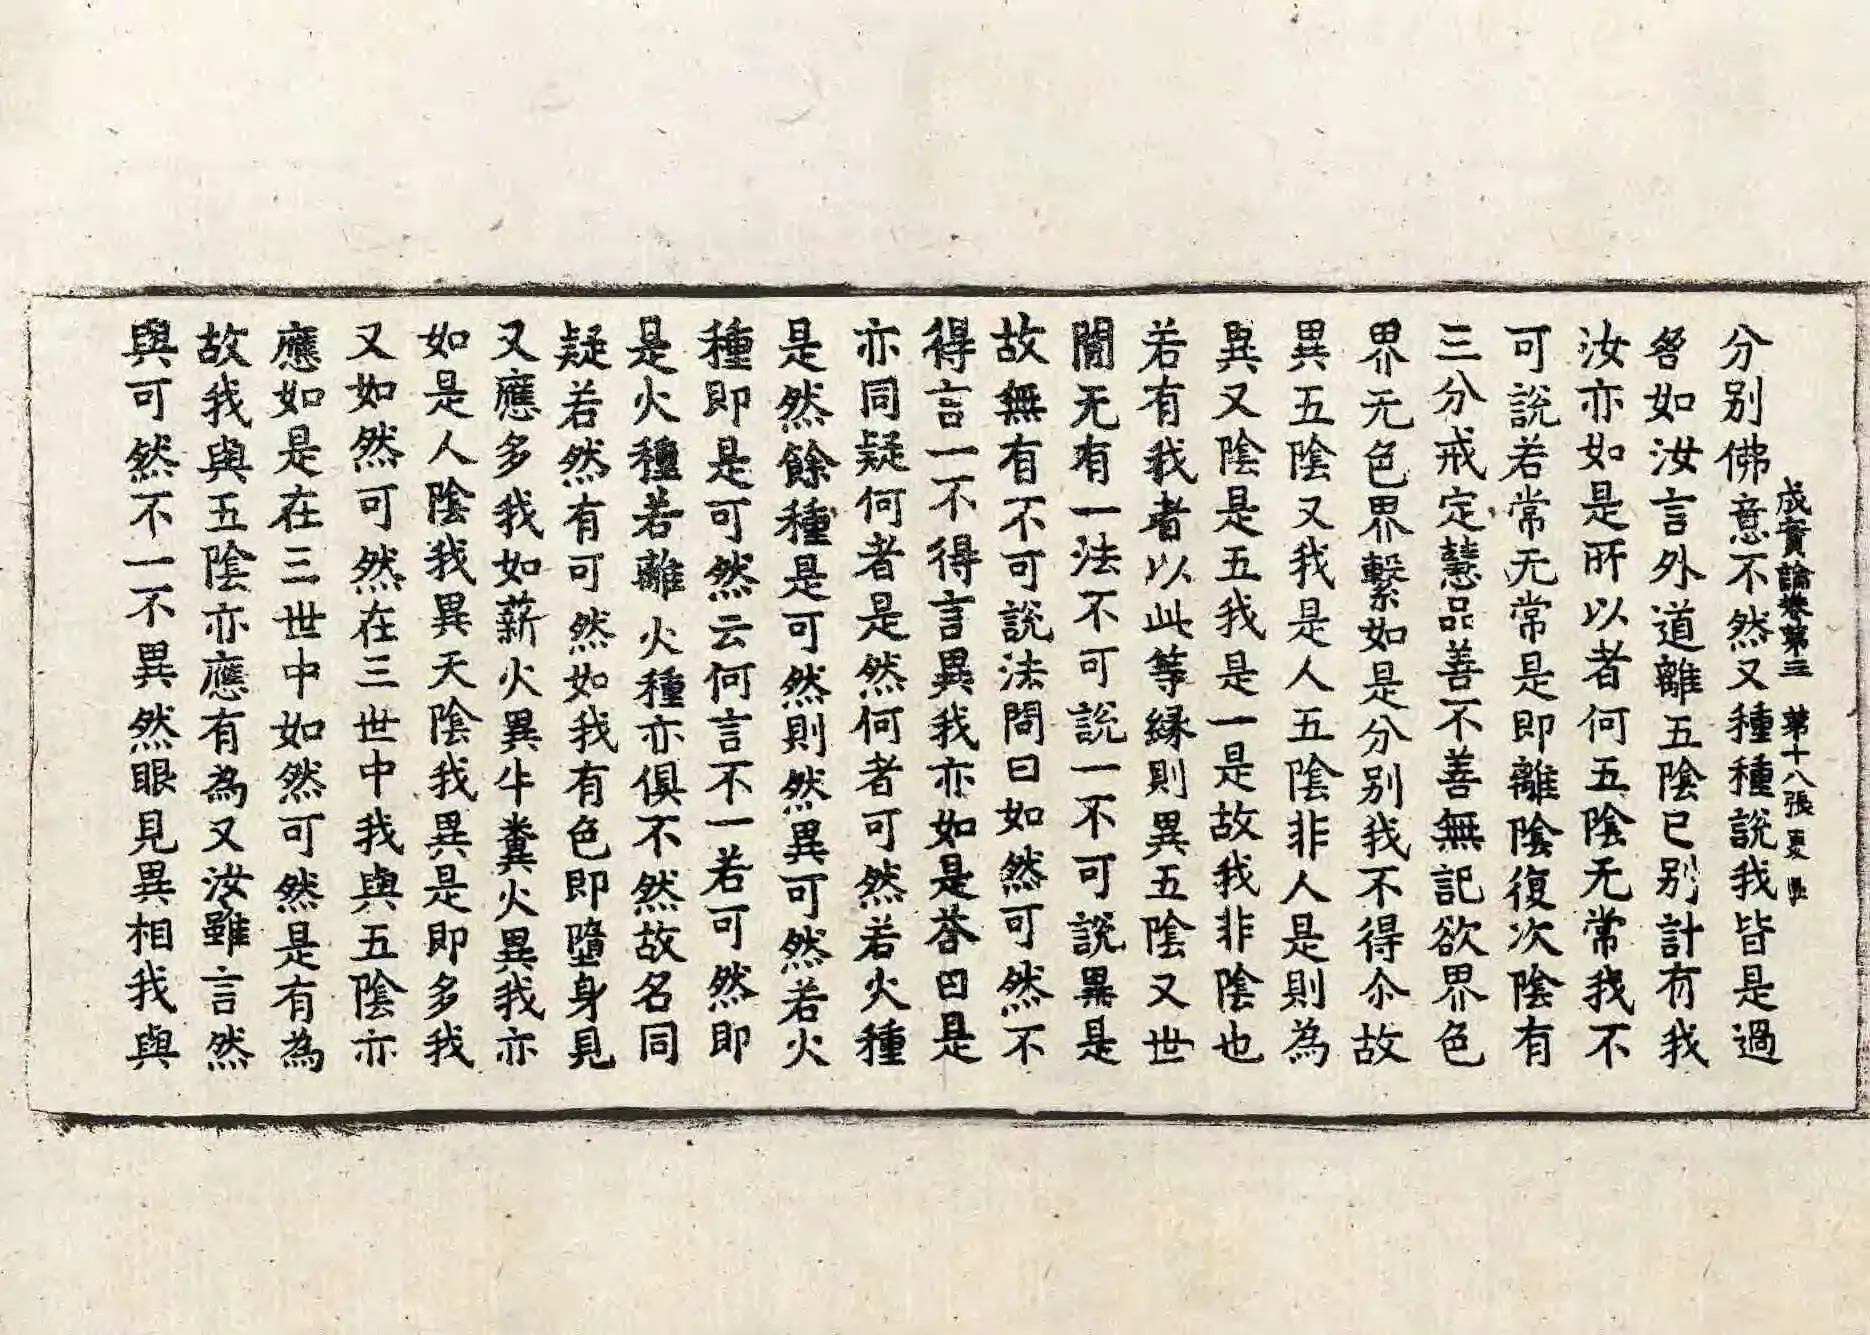 成實論卷第三 第十八張
分別佛意不然又種種說我皆是過
咎如汝言外道離五陰已別計有我
汝亦如是所以者何五陰无常我不
可說若常无常是即離陰復次陰有
三分戒定慧品善不善無記欲界色
界无色界繫如是分別我不得尒故
異五陰又我是人五陰非人是則為
異又陰是五我是一是故我非陰也
若有我者以此等縁則異五陰又世
閒无有一法不可說一不可說異是
故無有不可說法問曰如然可然不
得言一不得言異我亦如是荅曰是
亦同疑何者是然何者可然若火種
是然餘種是可然則然異可然若火
種即是可然云何言不一若可然即
是火種若離火種亦俱不然故名同
疑若然有可然如我有色即墮身見
又應多我如薪火異牛糞火異我亦
如是人陰我異天陰我異是即多我
又如然可然在三世中我與五陰亦
應如是在三世中如然可然是有為
故我與五陰亦應有為又汝雖言然
與可然不一不異然眼見異相我與